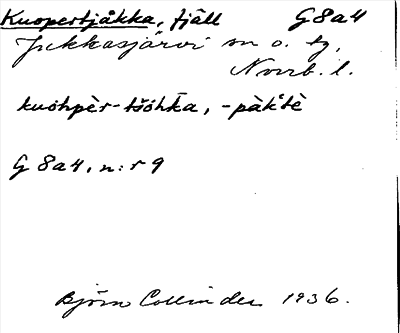 Kuopertjåkka, fjäll G8a4
Jukkasjärvi sn o. tg,
Norrb. l.
kuohpèr-tšohka, -pàktè
G 8a4, n:r 9
Björn Collinder 1936.